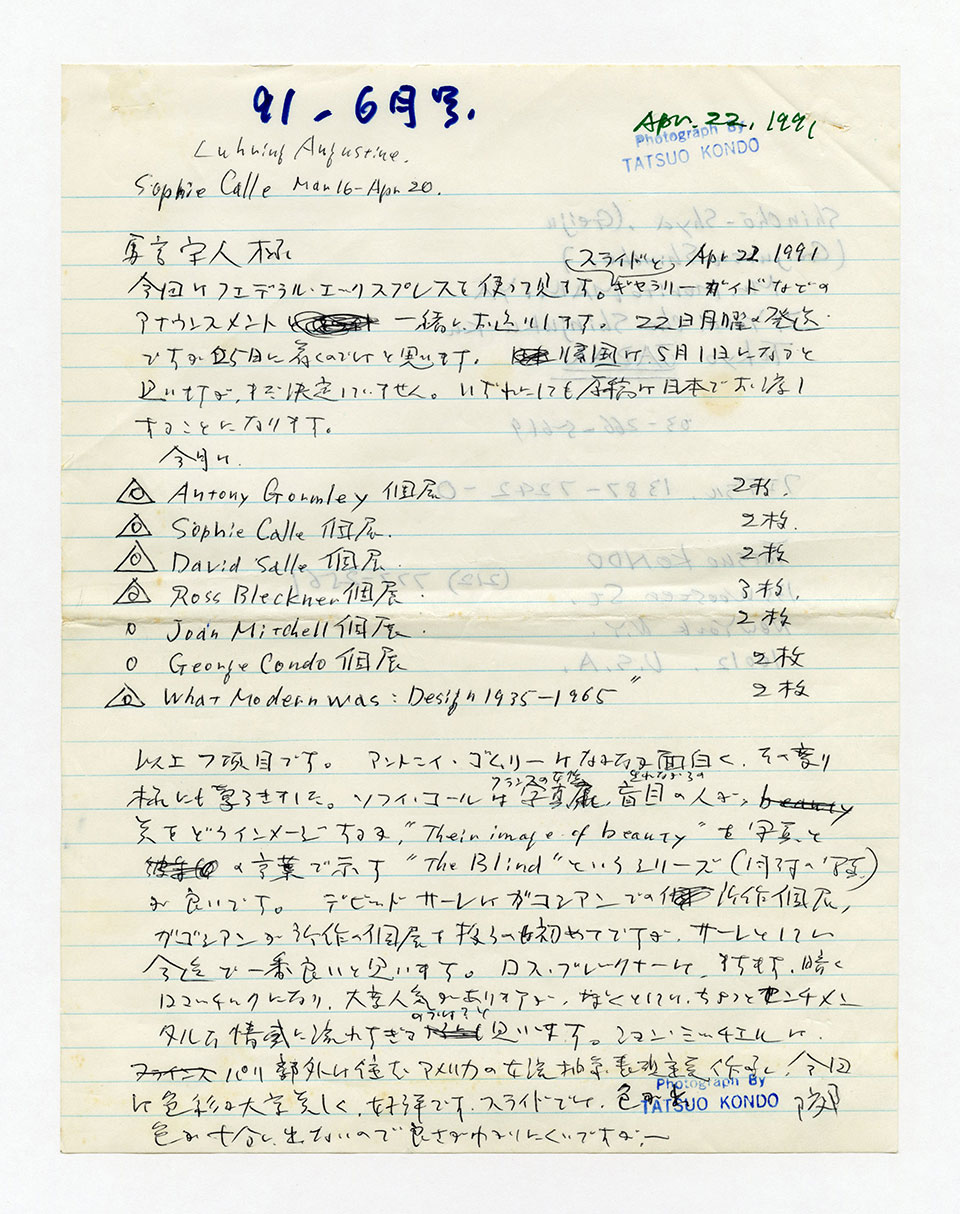 91-6月号.
Apr. 22, 1991
Photograph By
TATSUO KONDO
Luhring Augustine.
Sophie Calle Mar 16-Apr 20.
様
スライドと Apr 22 1991
今回はフェデラル・エックスプレスを使って見ます。ギャラリーガイドなどの
アナウンスメント 一緒にお送りします。22日月曜の発送
ですが25日に着くのではと思います。帰国は5月1日になると
思いますが、まだ決定していません。いずれにしても原稿は日本でお渡し
することになります。
今月は.
Antony Gormley 個展 2枚.
Sophie Calle 個展. 2枚.
David Salle 個展. 2枚
Ross Bleckner 個展. 3枚.
Joan Mitchell 個展. 2枚
George Condo 個展 2枚
What Modern was: Design 1935-1965" 2枚
以上7項目です。アントニイ・ゴムリーはなかなか面白く、その
にも きました。ソフィ・コールは フランスの女性 写真展, 生れながらの 盲目の人が, beauty
美をどうインメージするか, "Their image of beauty" を写真と
の言葉で示す "The Blind" というシリーズ (同封の写真)
が良いです。デビッド サーレはガゴシアンでの 新作個展,
ガゴシアンが新作の個展を扱うのは初めてですが、サーレとしては
今迄で一番良いと思います。ロス・ブレークナーは, ますます, 暗く
ロマンチックになり, 大変人気がありますが, としては, ちょっとセンチメン
タルな情感に流れすぎる のではないかと 思います。ジョン・ミッチエルは
フランス パリ郊外に住むアメリカの女流抽象表現主義作家, 今回
は色彩が大変美しく, 好評です. スライドでは, 色が
Photograph By
TATSUO KONDO
色が十分に出ないので良さがわかりにくいですが,